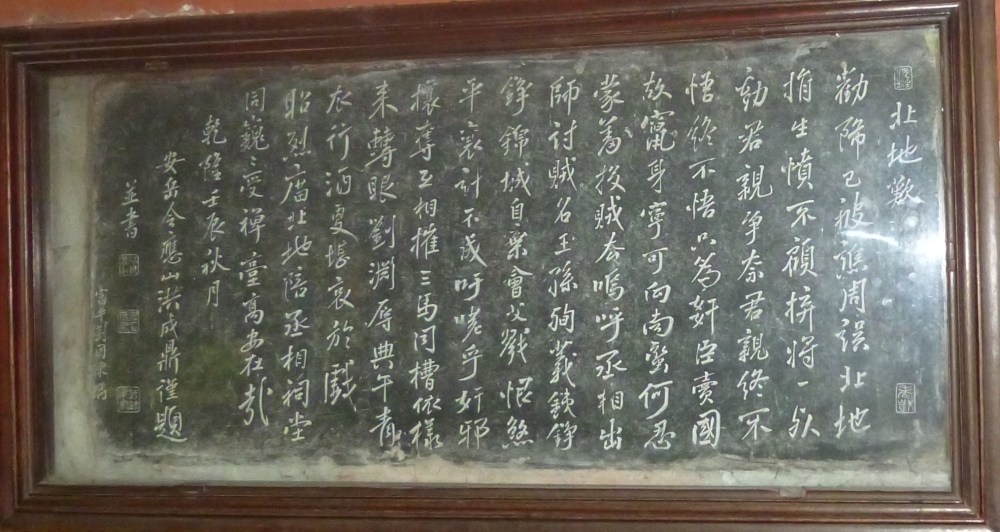 北地歎
勸降已被譙周誤北地
捐生憤不顧拚將一死
動君親爭奈君親終不
悟終不悟只為奸臣賣國
故竄身寧可向南蠻何忍
蒙羞投賊去嗚呼丞相出
師討賊名王孫殉義鐵錚
錚錦城自棄會父戮恨煞
平襄計不成吁嗟乎奸邪
攘奪互相摧三馬同槽依樣
來轉眼劉淵辱典午青
衣行酒更堪哀於戲
昭烈廟北地陪丞相祠堂
同巍巍受禪臺高安在哉
乾隆壬辰秋月
安岳令應山洪成鼎謹題
並書